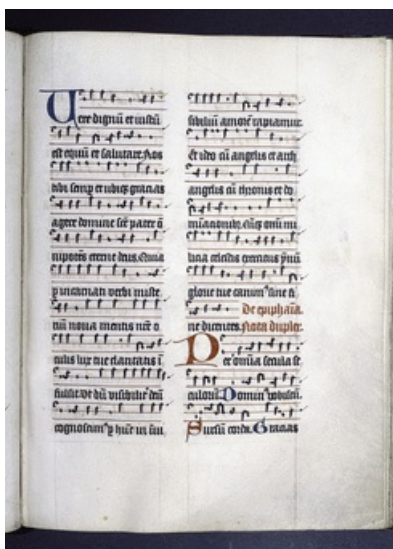 Uere dignũ et iustũ
est equũ et salutare. Nos
tibi semp et ubiqʒ gracias
agere domine scẽ pater õ
nipotẽs eterne deus. Quia
p incarnati verbi miste
riũ noua mentis nr̃e o
culis lux tue claritatis ĩ
fulsit. Ut dũ visibilit̉ deũ
cognoscim⁹ p hunc in ĩui
sibiliũ amorẽ rapiamur.
Et ideo cũ angelis et arch
angelis cũ thronis et do
minacionibꝫ. cũqʒ omĩ mi
licia celestis exercitus ymnũ
glorie tue canim⁹ sine fi
De epiphaĩa.
ne dicentes. Nota duplex.
Per omĩa secula se
culorũ. Domin⁹ vobiscũ.
Sursũ corda. Gracias